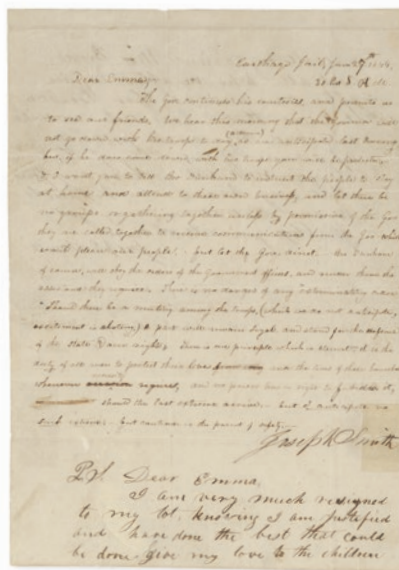 Carthage Jail, June 27th 1844.
20 past 8. A.M.
Dear Emma,
The Gov continues his courtesies, and permits us
to see our friends. We hear this morning that the Governor will
not go down with his troops to day to Nauvoo as anticipated last Evening
but, if he does come down with his troops you will be protected,
& I want you to tell Bro Dunham to instruct the people to stay
at home and attend to their own business, and let there be
no groups or gathering together unless by permission of the Gov
they are called together to receive communications from the Gov which
would please our people, but let the Gov direct. Bro Dunham
of course, will obey the orders of the Government officers, and render them the
assistance they require. There is no danger of any "exterminating order"
Should there be a mutiny among the troops, (which we do not anticipate,
excitement is abating,) a part will remain loyal, and stand for the defence
of the State & our rights; There is one principle which is eternal, it is the
duty of all men to protect their lives and the lives of their household
whenever requires, and no power has a right to forbid it,
should the last extreme arrive, but I anticipate no
such extreme, but caution is the parent of safety.
Joseph Smith
P.S. Dear Emma,
I am very much resigned
to my lot, knowing I am justified
and have done the best that could
be done give my love to the children